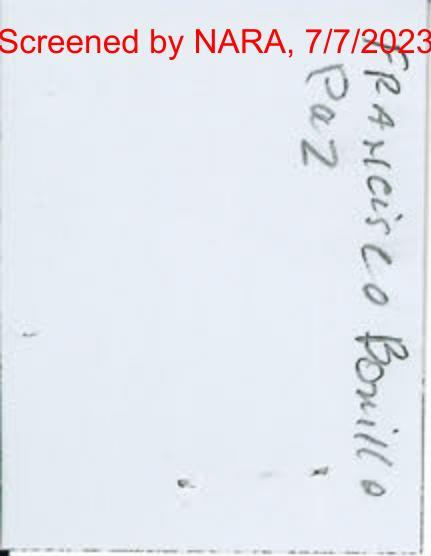 Screened by NARA, 7/7/2023
FRANCisco Bonillo
Paz